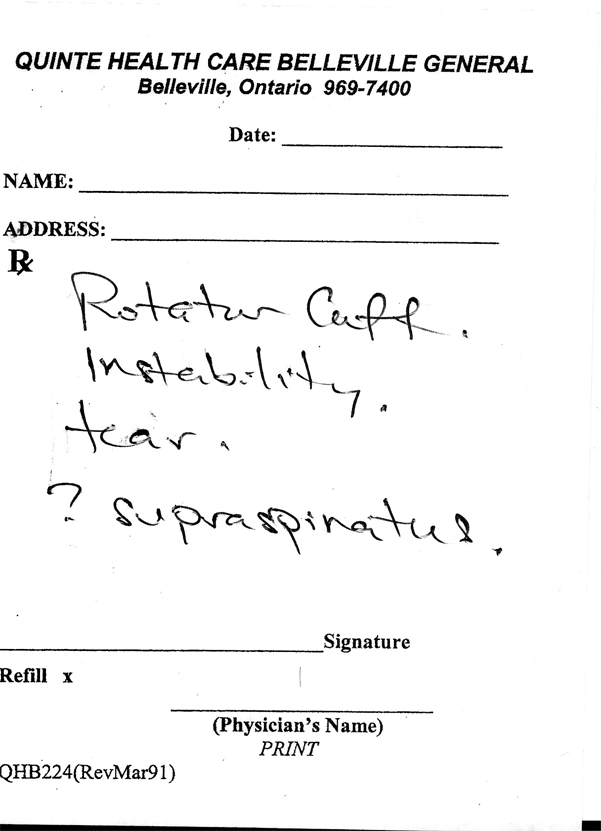 QUINTE HEALTH CARE BELLEVILLE GENERAL
Belleville, Ontario 969-7400
Date:
NAME:
ADDRESS:
℞
Rotatur Cuff.
Instability.
tear.
? supraspinatus.
Signature
Refill x
(Physician's Name)
PRINT
QHB224(RevMar91)